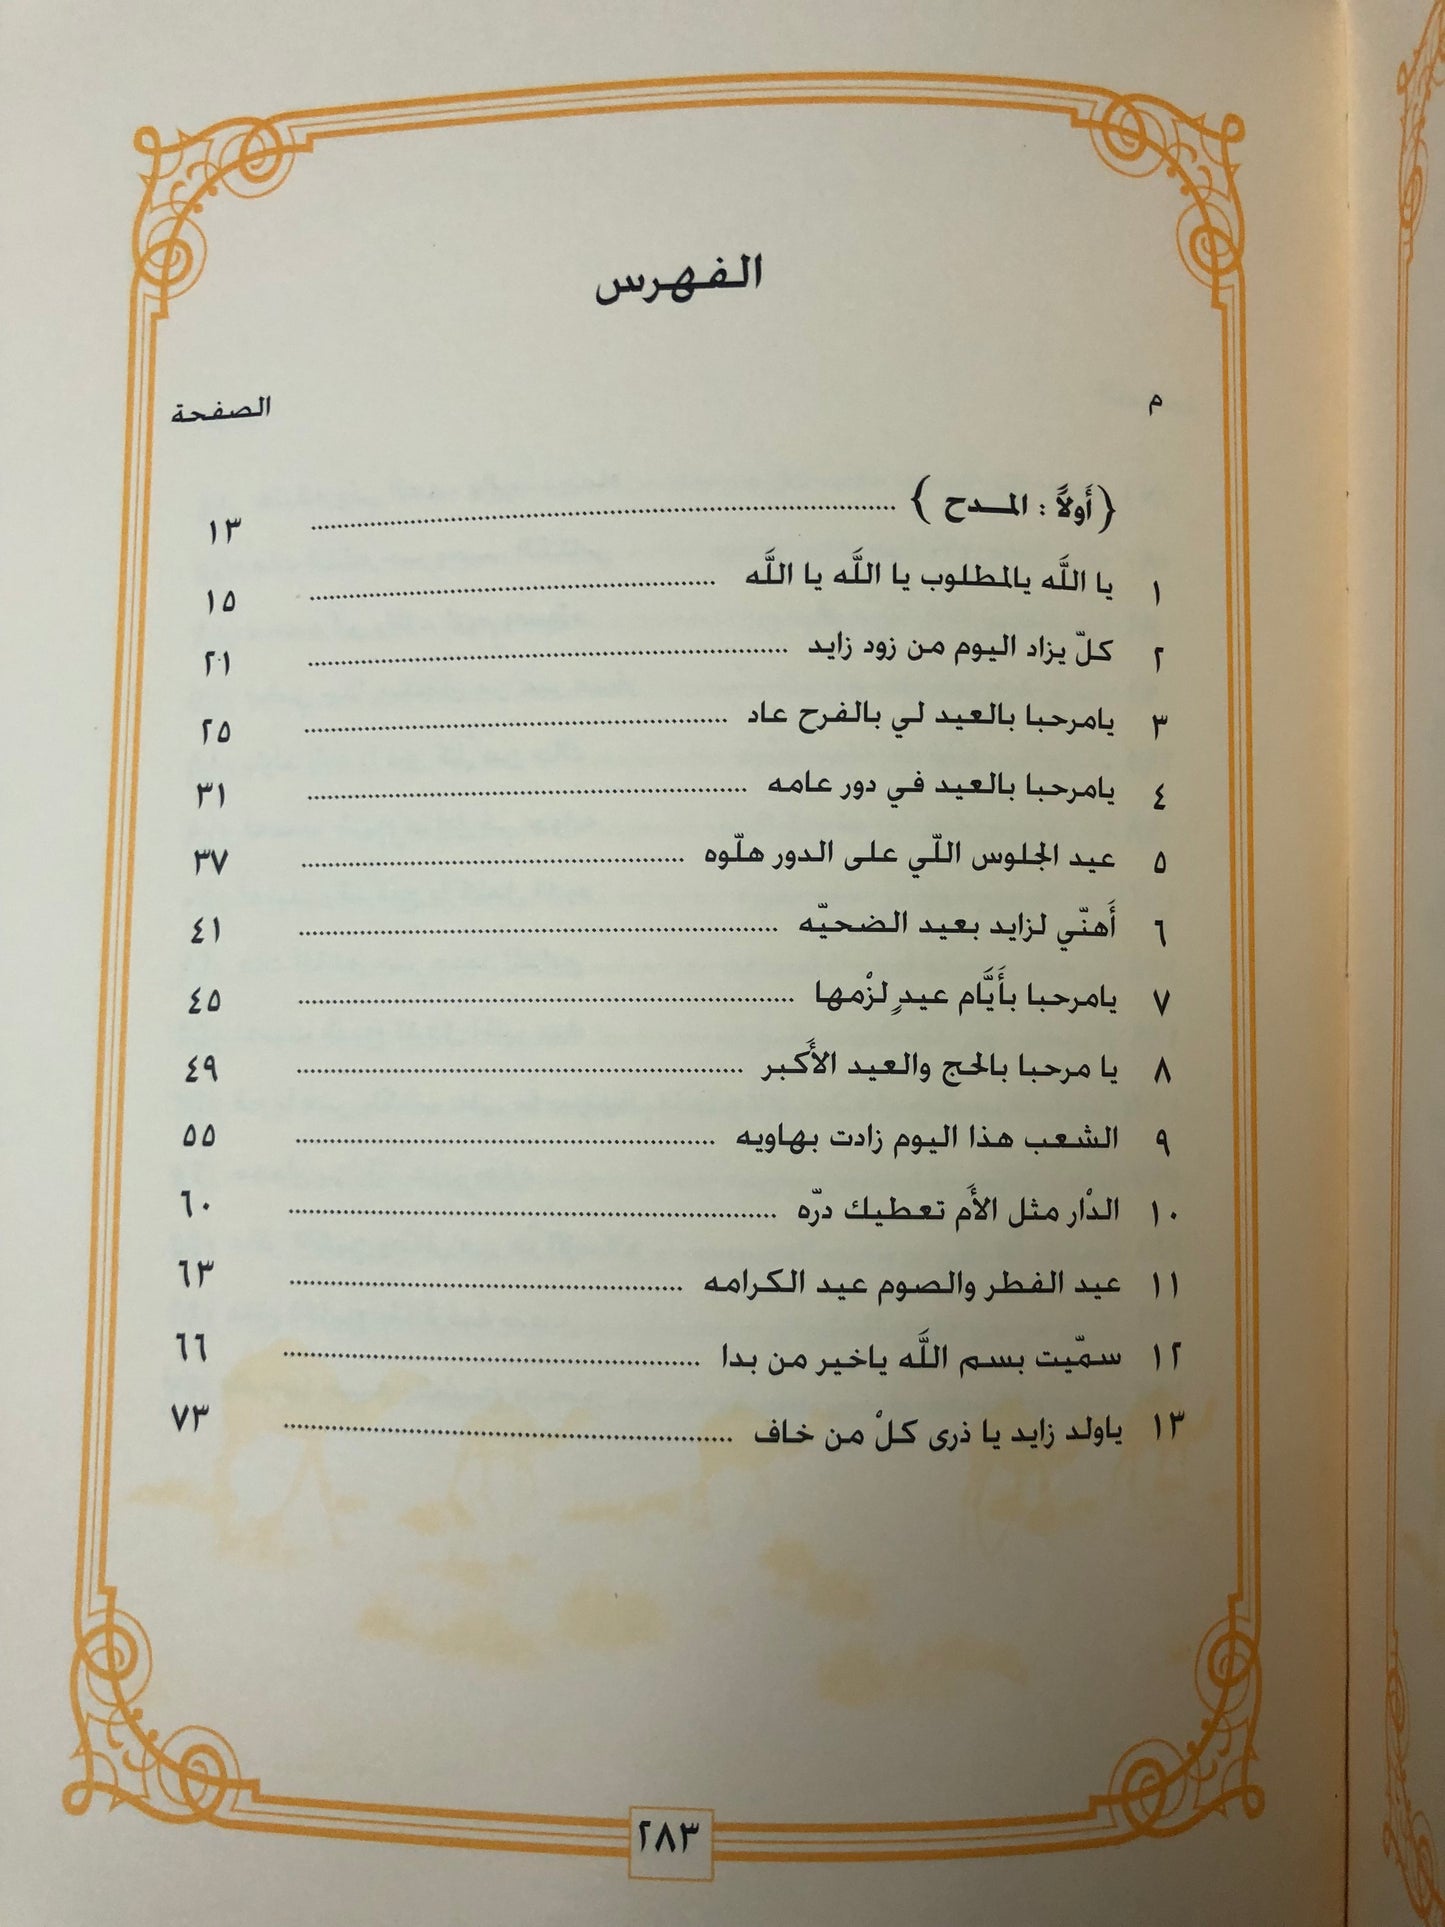 الفهرس
م الصفحة
{أَولاً : المدح } ١٣
١ يا اللَّه يالمطلوب يا اللَّه يا اللَّه ١٥
٢ كلّ يزاد اليوم من زود زايد ٢١
٣ يامرحبا بالعيد لي بالفرح عاد ٢٥
٤ يامرحبا بالعيد في دور عامه ٣١
٥ عيد الجلوس اللّي على الدور هلّوه ٣٧
٦ أَهنّي لزايد بعيد الضحيّه ٤١
٧ يامرحبا بأَيَّام عيدٍ لزْمها ٤٥
٨ يا مرحبا بالحج والعيد الأَكبر ٤٩
٩ الشعب هذا اليوم زادت بهاويه ٥٥
١٠ الدْار مثل الأَم تعطيك درّه ٦٠
١١ عيد الفطر والصوم عيد الكرامه ٦٣
١٢ سمّيت بسم اللَّه ياخير من بدا ٦٦
١٣ ياولد زايد يا ذرى كلْ من خاف ٧٣
٢٨٣